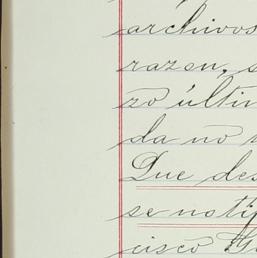 archivos
razon,
zo últi
da no
Que des
se noti
cisco